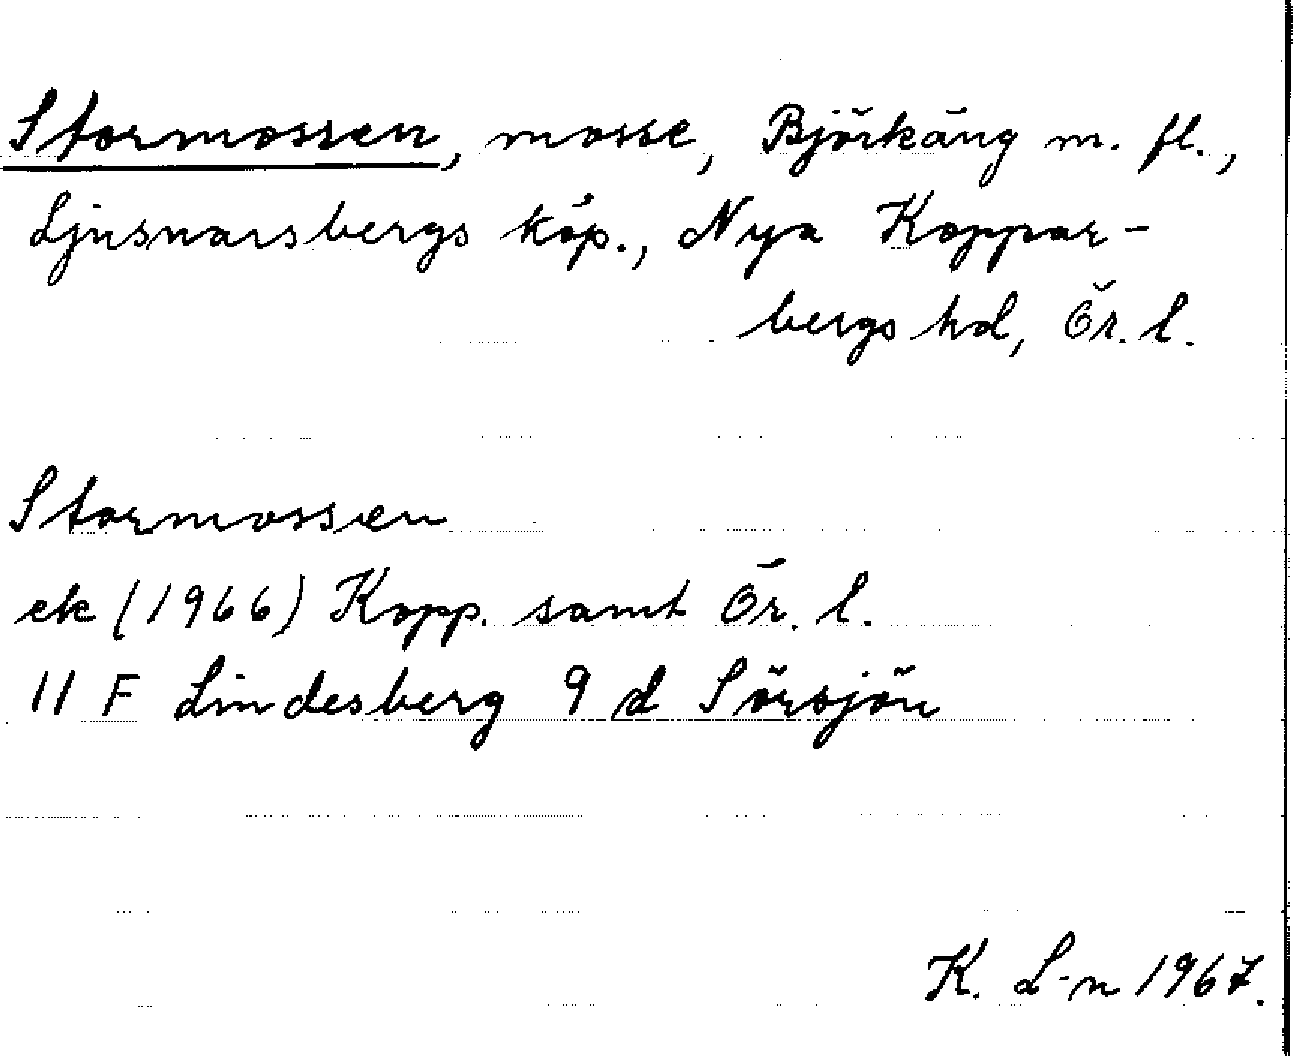 Stormossen, mosse, Björkäng m. fl.,
Ljusnarsbergs köp., Nya Koppar-
bergs hd, Ör. l.
Stormossen
ek (1966) Kopp. samt Ör. l.
11 F Lindesberg 9 d Sörsjön
K. L-n 1967.